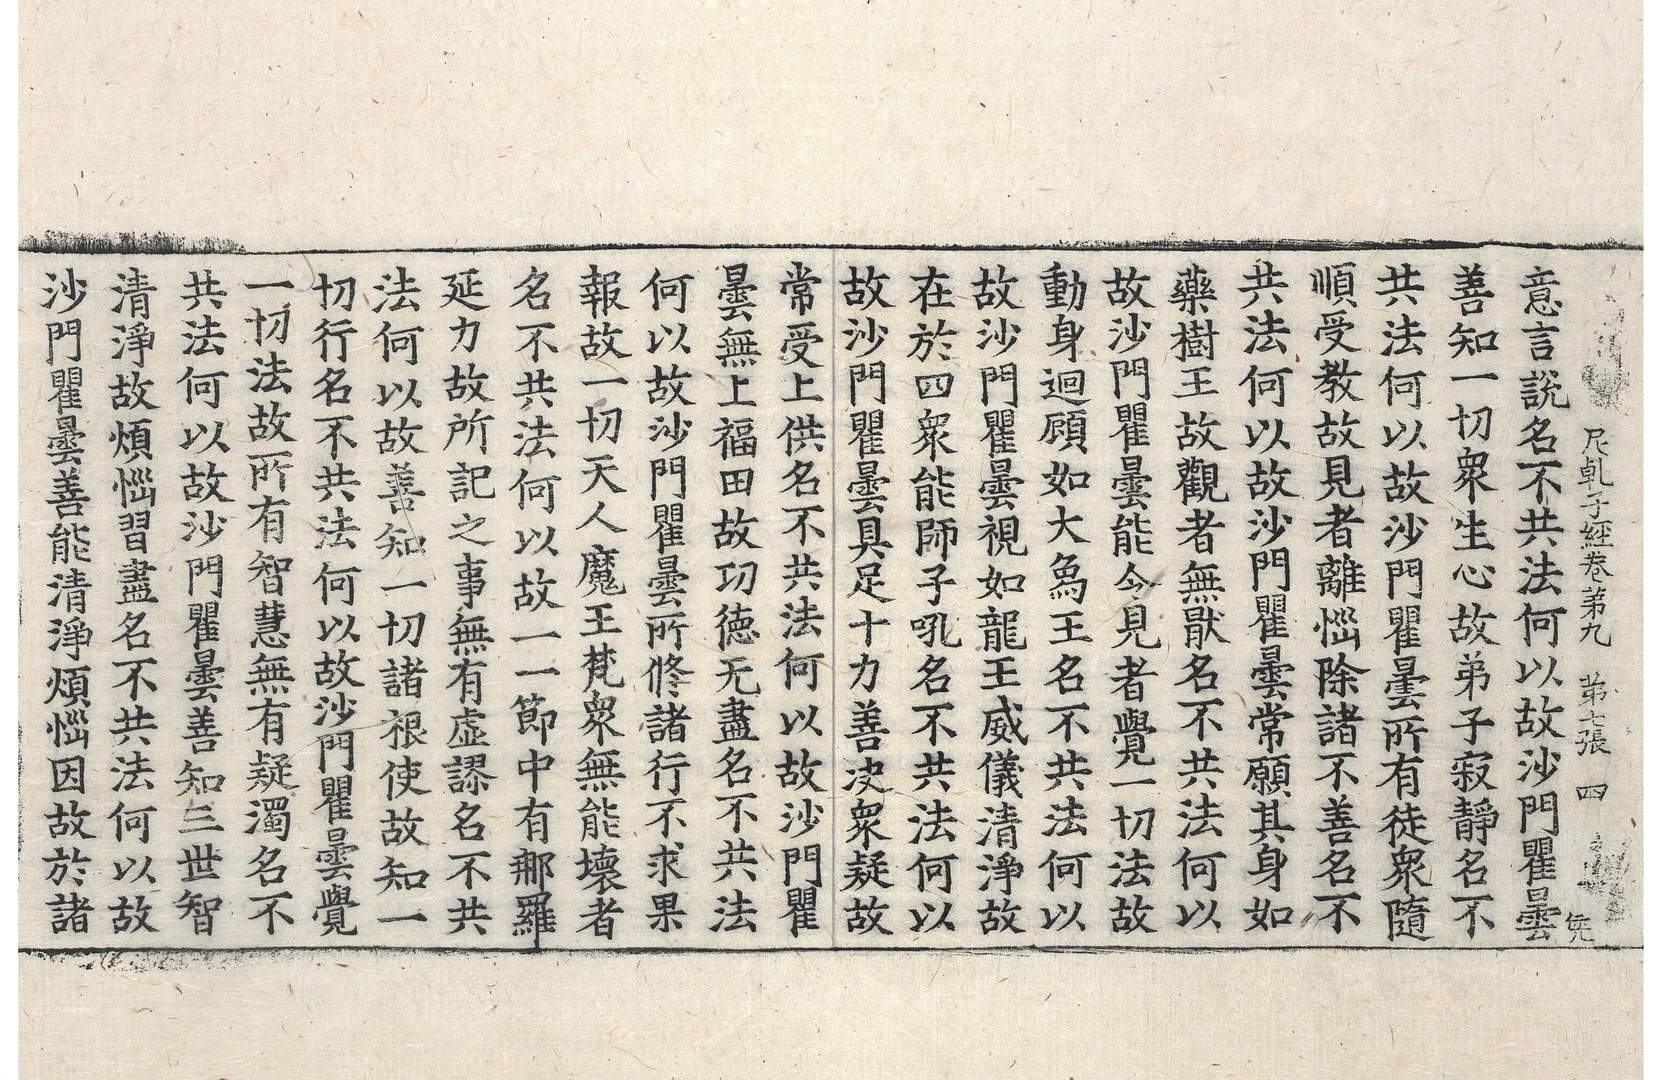 尼乹子經卷苐九 苐七張 四
意言說名不共法何以故沙門瞿曇
善知一切衆生心故弟子寂靜名不
共法何以故沙門瞿曇所有徒衆隨
順受教故見者離惱除諸不善名不
共法何以故沙門瞿曇常願其身如
藥樹王故觀者無猒名不共法何以
故沙門瞿曇能令見者覺一切法故
動身迴顧如大象王名不共法何以
故沙門瞿曇視如龍王威儀清淨故
在於四衆能師子吼名不共法何以
故沙門瞿曇具足十力善决衆疑故
常受上供名不共法何以故沙門瞿
曇無上福田故功徳无盡名不共法
何以故沙門瞿曇所修諸行不求果
報故一切天人魔王梵衆無能壞者
名不共法何以故一一節中有那羅
延力故所記之事無有虛謬名不共
法何以故善知一切諸根使故知一
切行名不共法何以故沙門瞿曇覺
一切法故所有智慧無有疑濁名不
共法何以故沙門瞿曇善知三世智
清淨故煩惱習盡名不共法何以故
沙門瞿曇善能清淨煩惱因故於諸